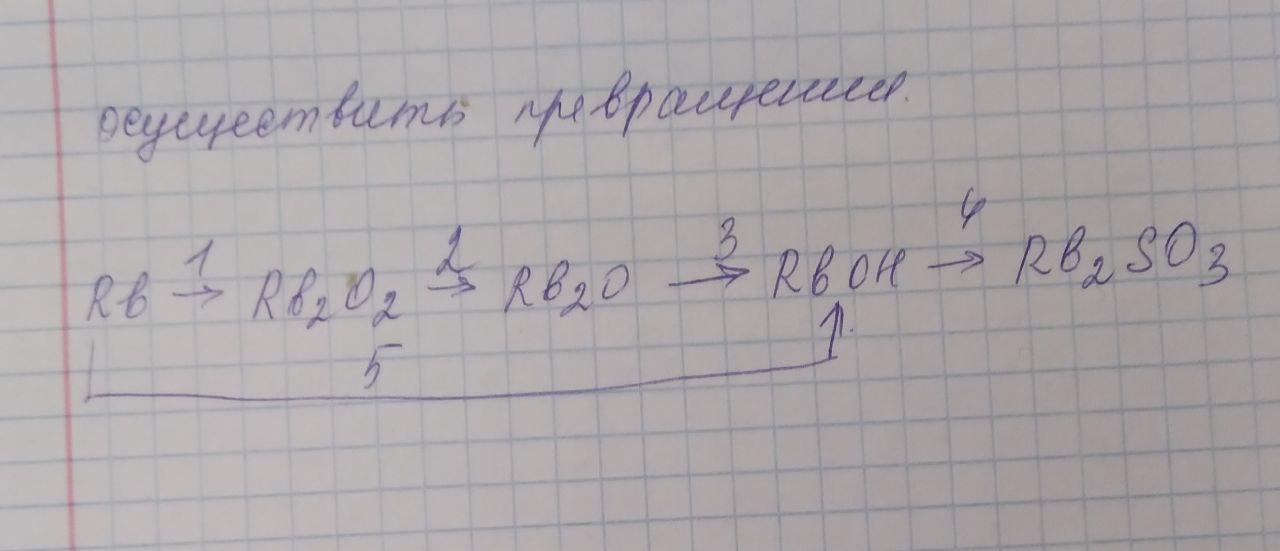 осуществить превращения.
1 2 3 4
Rb → Rb₂O₂ → Rb₂O → RbOH → Rb₂SO₃
5